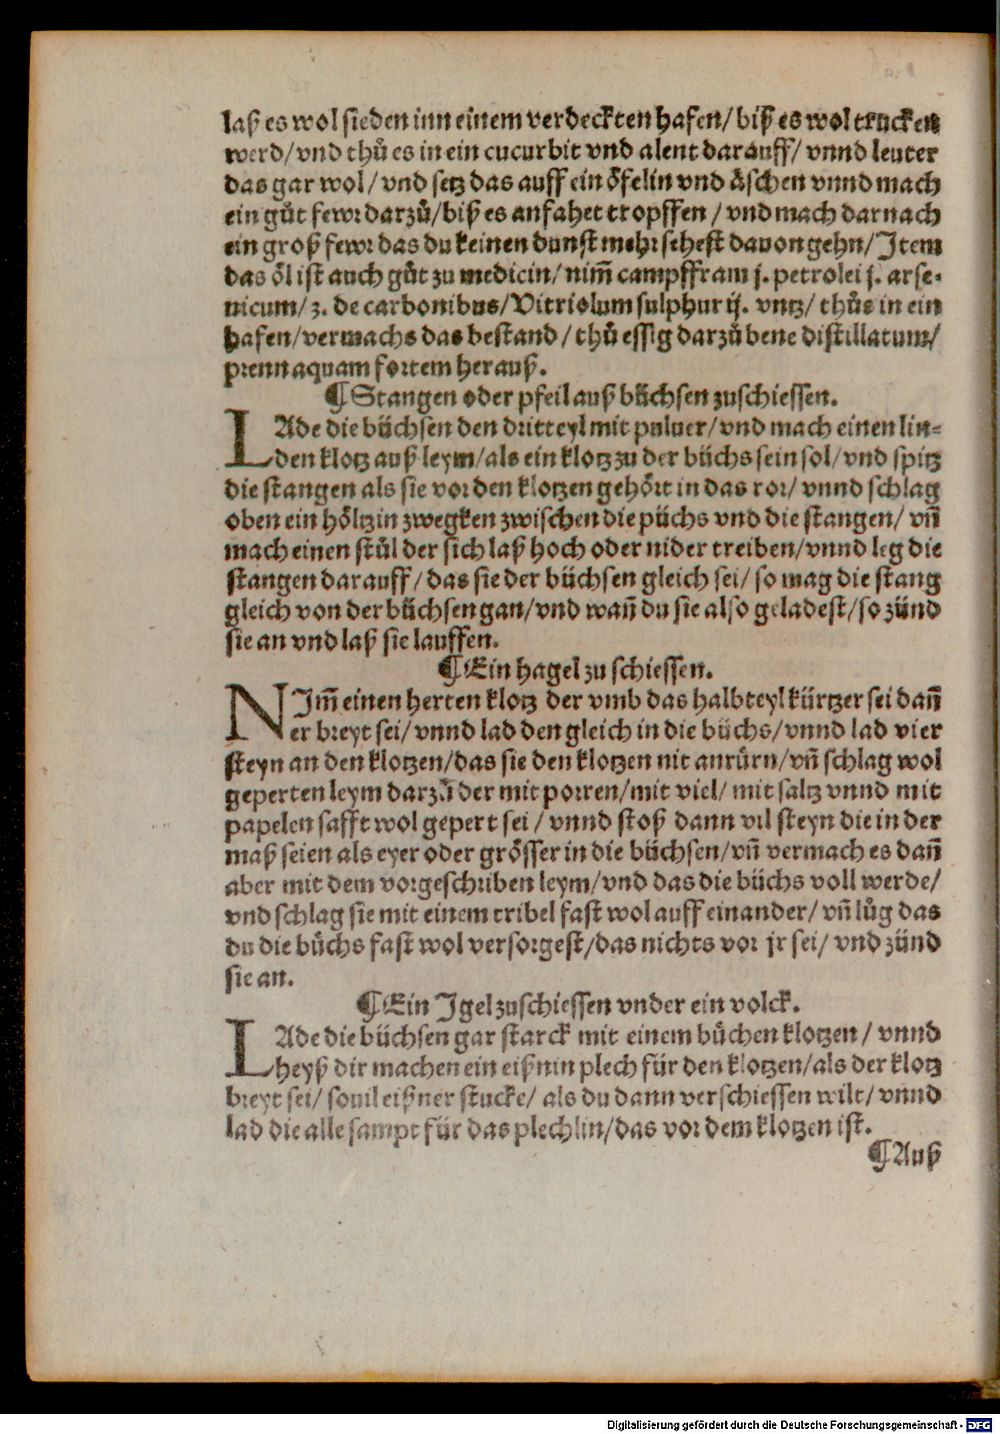 laß es wol sieden inn einem verdeckten hafen/ biß es wol trucken
werd/ vnd thů es in ein cucurbit vnd alent darauff/ vnnd leuter
das gar wol/ vnd setz das auff ein öfelin vnd äschen vnnd mach
ein gůt fewr darzů/ biß es anfahet tropffen / vnd mach darnach
ein groß fewr das du keinen dunst mehr sehest dauon gehn/ Item
das öl ist auch gůt zu medicin/ nim̃ campffram j. petrolei j. arse-
nicum/ ʒ. de carbonibus/ Vitriolum sulphur ij. vntz/ thůs in ein
hafen/ vermachs das bestand / thů essig darzů bene distillatum/
prenn aquam fortem herauß.
¶ Stangen oder pfeil auß büchsen zuschiessen.
LAde die büchsen den dritteyl mit puluer/ vnd mach einen lin-
den klotz auß leym/ als ein klotz zu der büchs sein sol/ vnd spitz
die stangen als sie vor den klotzen gehört in das ror/ vnnd schlag
oben ein höltzin zwegken zwischen die püchs vnd die stangen/ vñ
mach einen stůl der sich laß hoch oder nider treiben/ vnnd leg die
stangen darauff / das sie der büchsen gleich sei/ so mag die stang
gleich von der büchsen gan/ vnd wañ du sie also geladest/ so zünd
sie an vnd laß sie lauffen.
¶ Ein hagel zu schiessen.
NIm̃ einen herten klotz der vmb das halbteyl kürtzer sei dañ
er breyt sei/ vnnd lad den gleich in die büchs/ vnnd lad vier
steyn an den klotzen/ das sie den klotzen nit anrürn/ vñ schlag wol
geperten leym darzů der mit porren/ mit viel/ mit saltz vnnd mit
papelen safft wol gepert sei / vnnd stoß dann vil steyn die in der
maß seien als eyer oder grösser in die büchsen/ vñ vermach es dañ
aber mit dem vorgeschriben leym/ vnd das die büchs voll werde/
vnd schlag sie mit einem tribel fast wol auff einander/ vñ lůg das
du die büchs fast wol versorgest/ das nichts vor jr sei/ vnd zünd
sie an.
¶ Ein Igel zuschiessen vnder ein volck.
LAde die büchsen gar starck mit einem bůchen klotzen / vnnd
heyß dir machen ein eißnin plech für den klotzen/ als der klotz
breyt sei/ souil eißner stucke/ als du dann verschiessen wilt/ vnnd
lad die alle sampt für das plechlin/ das vor dem klotzen ist.
¶ Auß
Digitalisierung gefördert durch die Deutsche Forschungsgemeinschaft - DFG